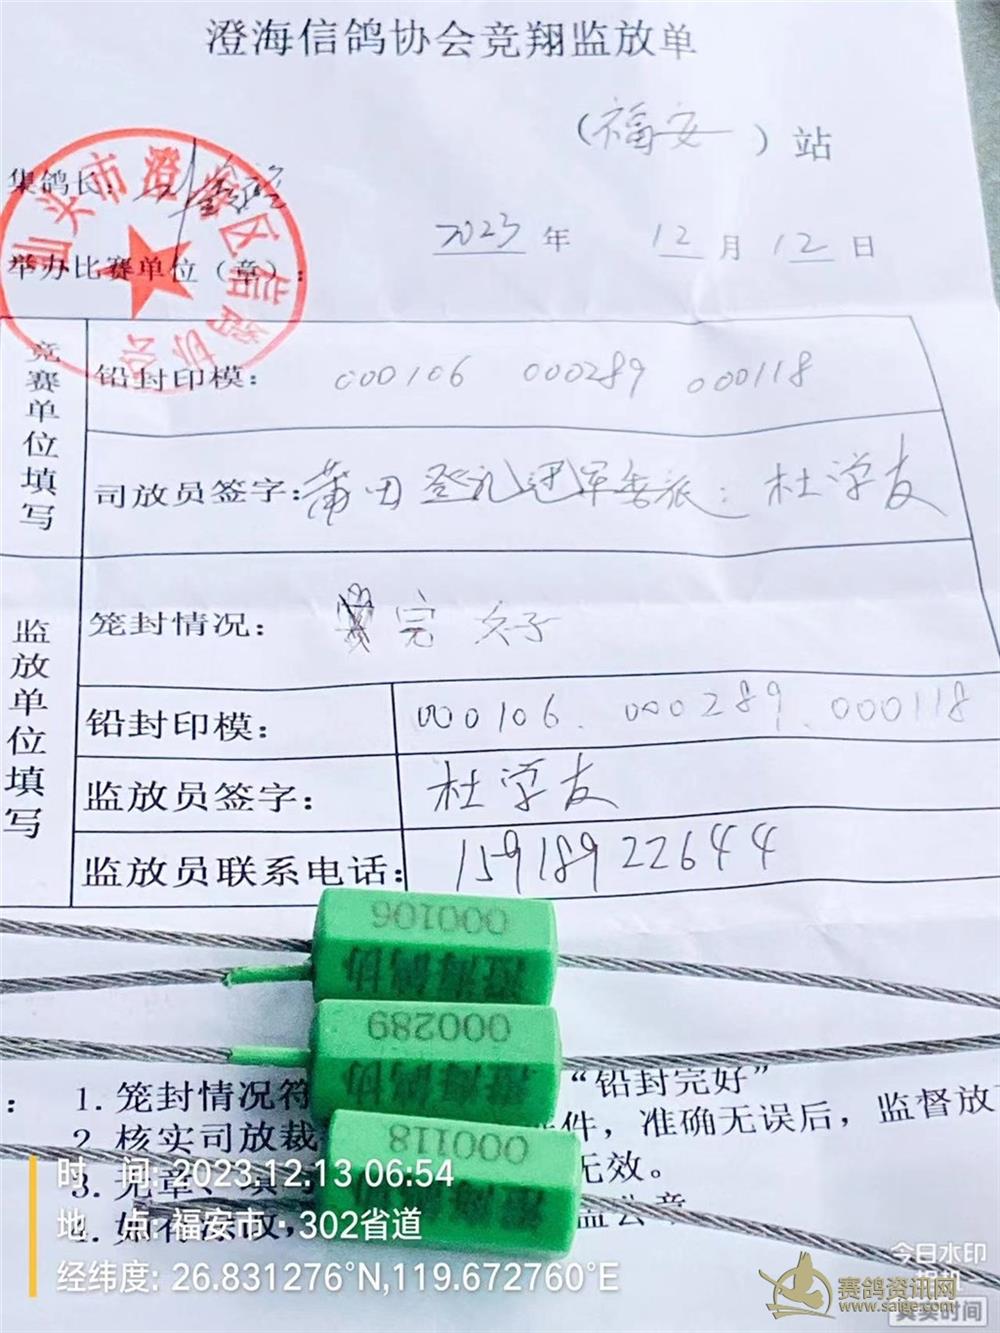 澄海信鸽协会竞翔监放单
(福安)站
集鸽长:
汕头市澄海区信鸽协会
2023年 12月12日
举办比赛单位(章):
竞赛单位填写
铅封印模: 000106 000289 000118
司放员签字: 莆田登礼冠军委派: 杜学友
监放单位填写
笼封情况: 完好
铅封印模: 000106. 000289. 000118
监放员签字: 杜学友
监放员联系电话: 15918922644
000106
澄海鸽协
000289
澄海鸽协
000118
澄海鸽协
: 1. 笼封情况符 “铅封完好”
2 核实司放裁 件，准确无误后，监督放
3. 无章、填 无效。
4. 如有
时 间: 2023.12.13 06:54
地 点: 福安市·302省道
经纬度: 26.831276°N,119.672760°E
今日水印
相机
真实时间
赛鸽资讯网
www.saige.com